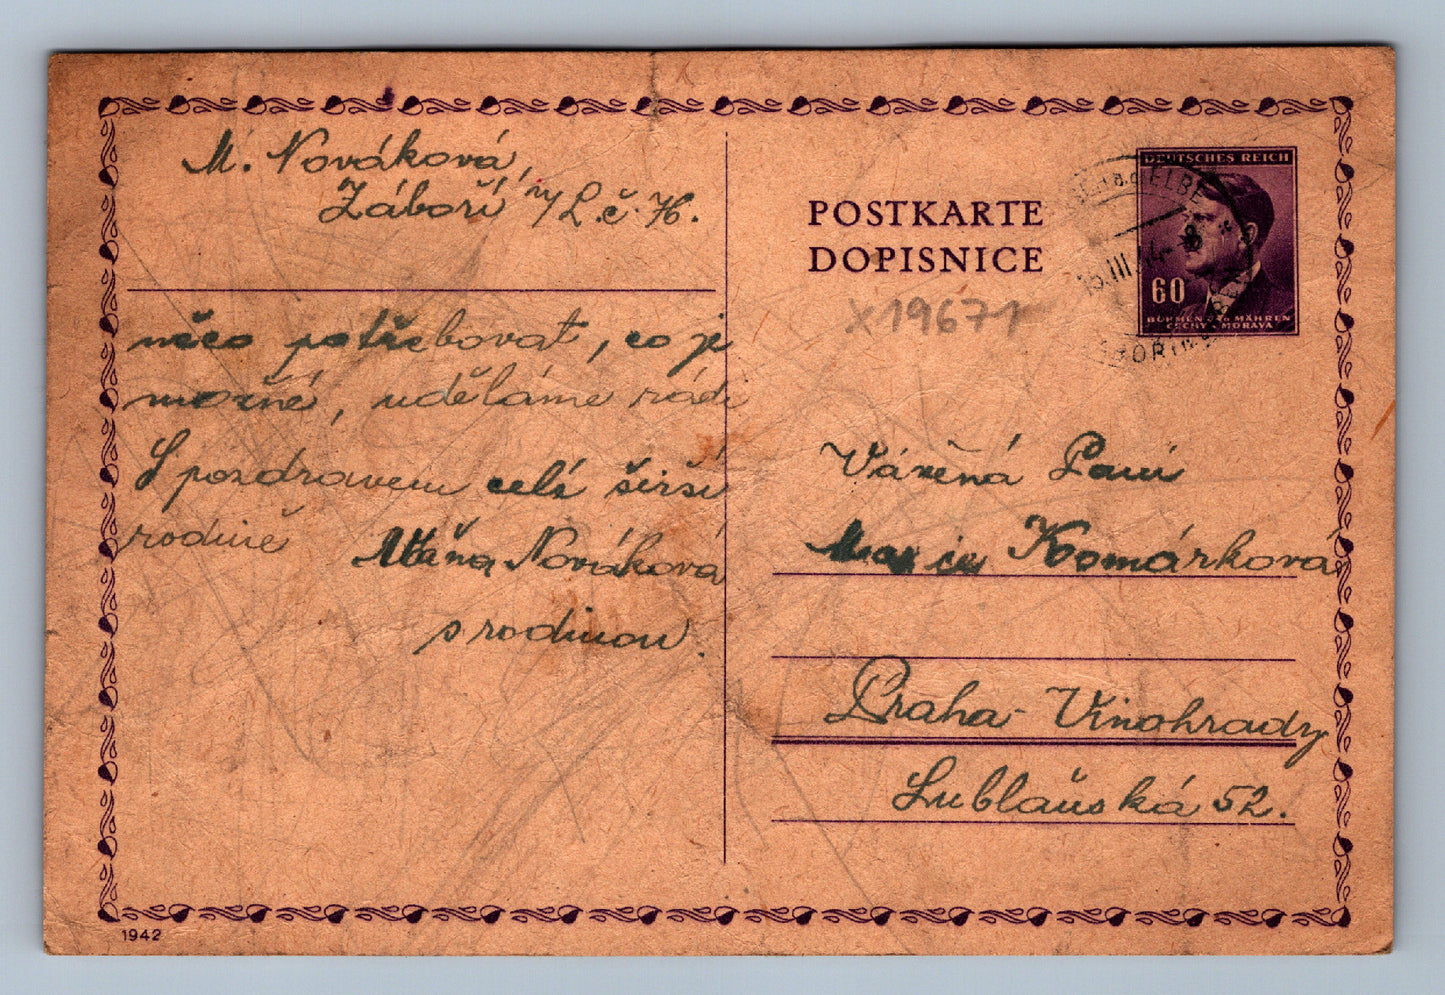 M. Nováková,
Záboří n/L. č. 76.
POSTKARTE
DOPISNICE
DEUTSCHES REICH
60
BÖHMEN u. MÄHREN
ČECHY a MORAVA
ELBE
15.III.44-18
x19671
něco potřebovat, co je
možné, uděláme rádi
S pozdravem celé širší
rodině
Máňa Nováková
s rodinou.
Vážená Paní
Marie Komárková
Praha-Vinohrady
Lublaňská 52.
1942